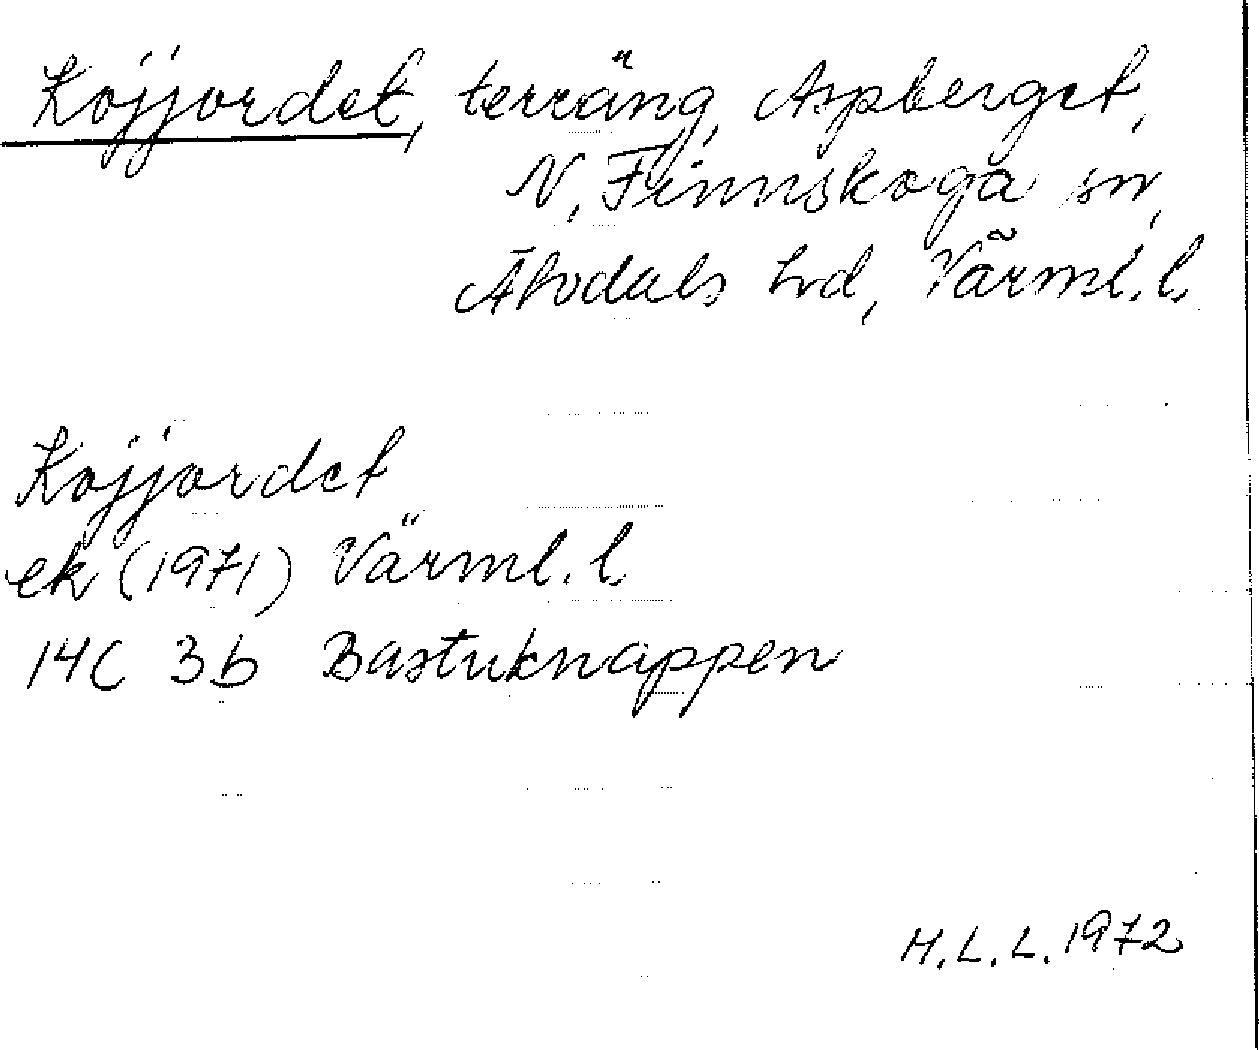 Kojjordet, terräng, Aspberget,
N. Finnskoga sn,
Älvdals hd, Värml. l.
Kojjordet
ek (1971) Värml. l.
14C 3b Bastuknappen
H.L.L. 1972